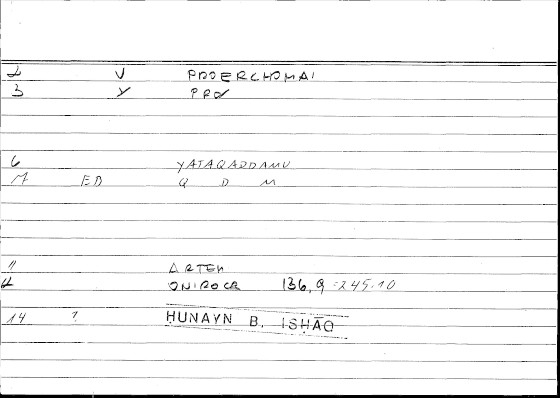 2 V PROERCHOMAI
3 Y PRO
6 YATAQADDAMU
7 ED Q D M
11 ARTEM
12 ONIROCR 136,9 = 245.10
14 ? ḤUNAYN B. ISḤĀQ